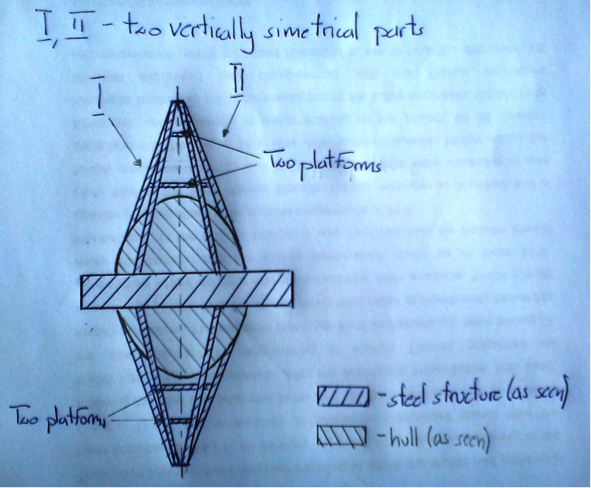 I, II - two vertically simetrical parts
I
II
Two platforms
Two platforms
- steel structure (as seen)
- hull (as seen)